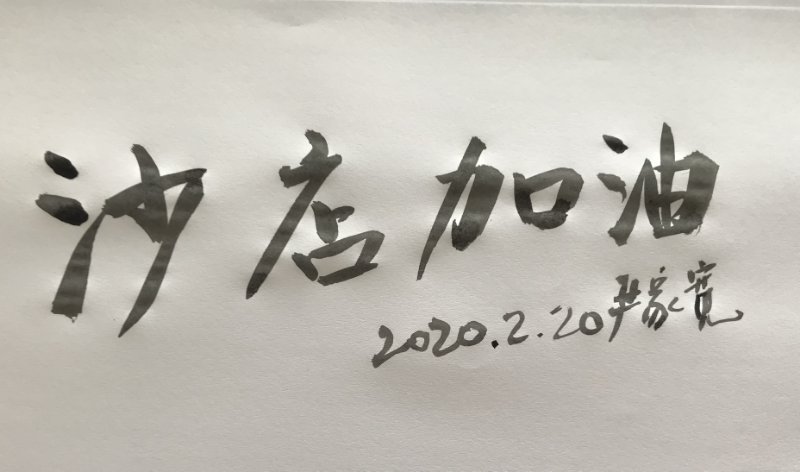 沙店加油
2020.2.20 严家宽